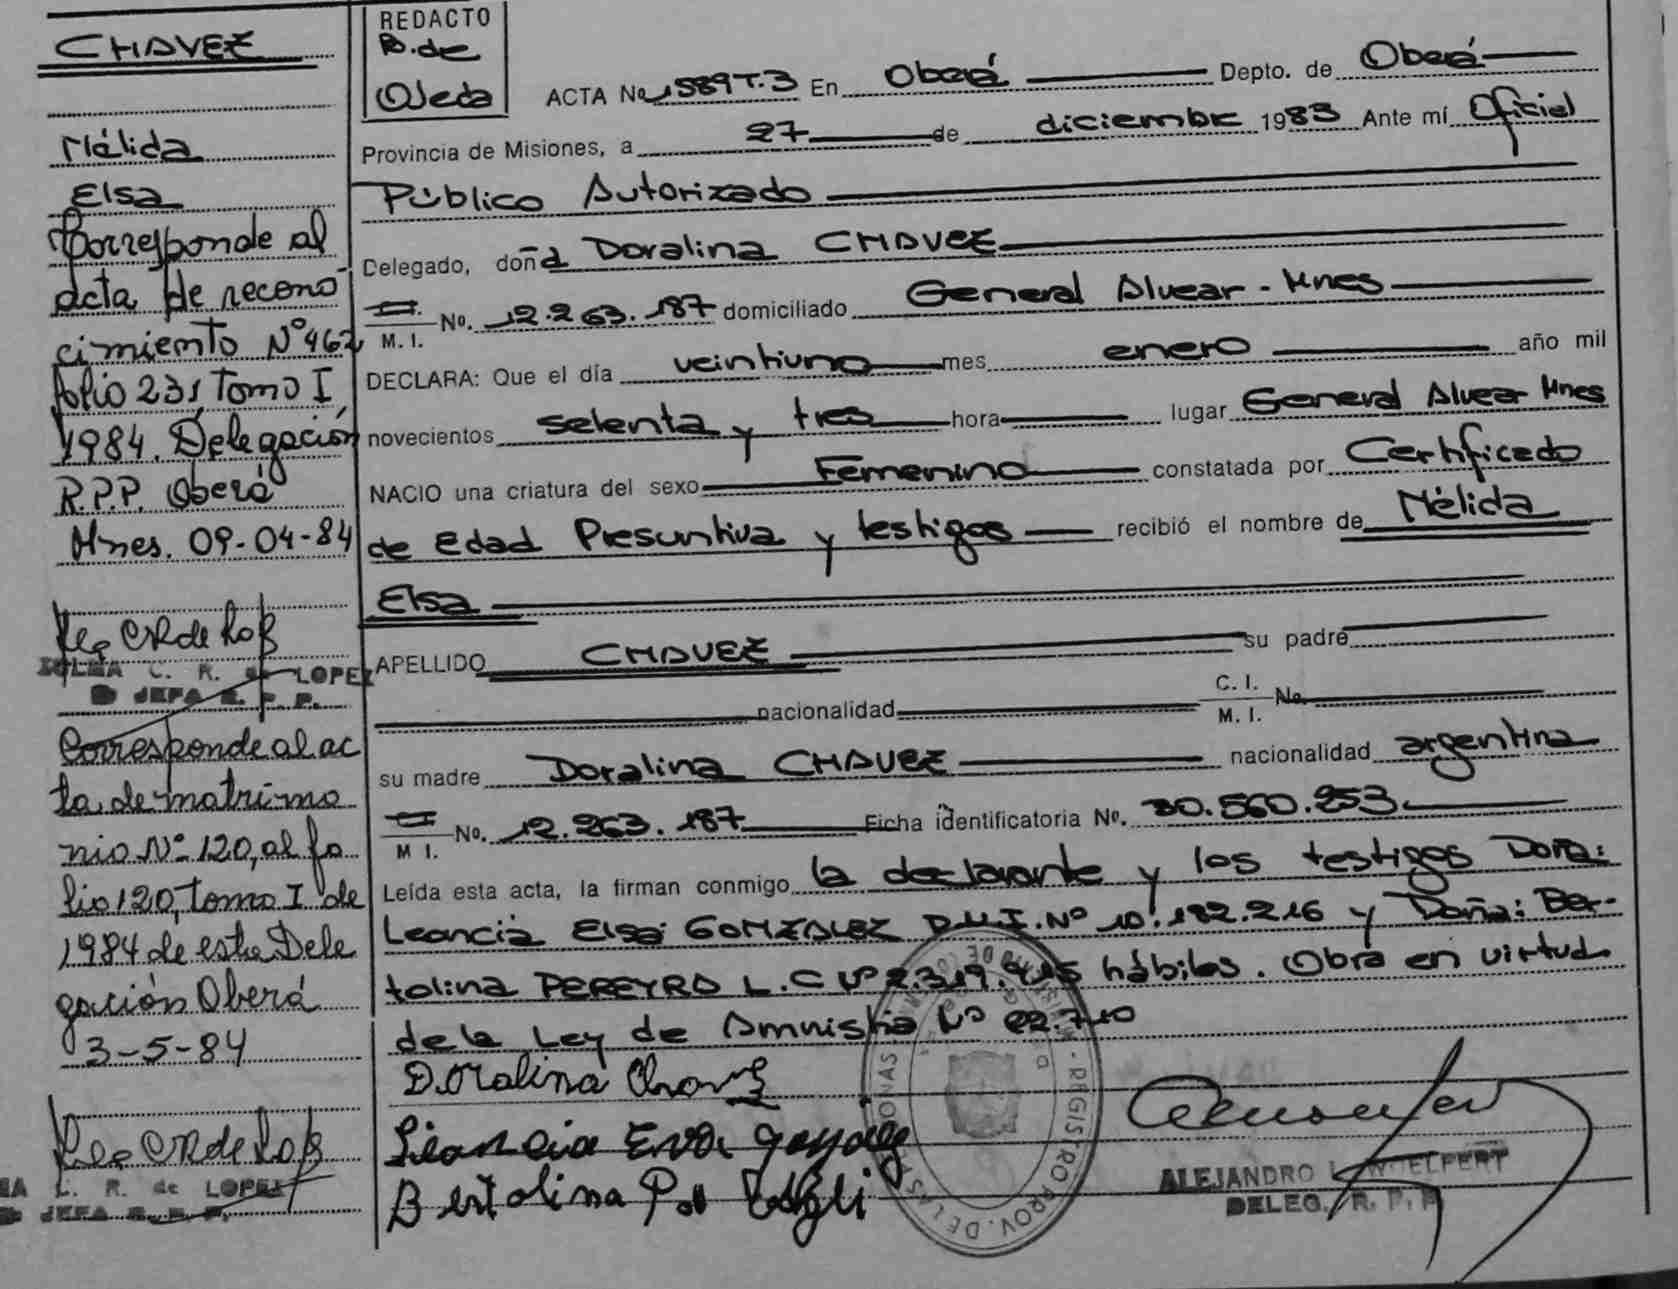 CHAVEZ
Nélida
Elsa
Corresponde al
acta de recono
cimiento Nº 462
folio 231 Tomo I
1984. Delegación
R.P.P. Oberá
Mnes. 09-04-84
C. R. de LOPEZ
JEFA R. P. P.
Corresponde al ac
ta de matrimo
nio Nº 120, al fo
lio 120, tomo I de
1984 de esta Dele
gación Oberá
3-5-84
C. R. de LOPEZ
JEFA R. P. P.
REDACTO
B. de
Ojeda
ACTA No 1589 T.3 En Oberá Depto. de Oberá
Provincia de Misiones, a 27 de diciembre 1983 Ante mí Oficial
Público Autorizado
Delegado, doña Doralina CHAVEZ
M. I. No. 12.263.187 domiciliado General Alvear - Mnes
DECLARA: Que el día veintiuno mes enero año mil
novecientos setenta y tres hora lugar General Alvear Mnes
NACIO una criatura del sexo Femenino constatada por Certificado
de Edad Presuntiva y testigos recibió el nombre de Nélida
Elsa
APELLIDO CHAVEZ su padre
nacionalidad C. I. M. I. No.
su madre Doralina CHAVEZ nacionalidad argentina
M I. No. 12.263.187 Ficha identificatoria No. 30.560.253
Leída esta acta, la firman conmigo la declarante y los testigos Doña:
Leoncia Elsa GONZALEZ D.N.I. Nº 10.182.216 y Doña: Ber-
tolina PEREYRO L.C Nº 2.319. hábiles. Obra en virtud
de la Ley de Amnistia Nº 22.710
Doralina Chavez
Bertolina
REGISTRO PROV. DE LAS PERSONAS
ALEJANDRO
DELEG. R. P. P.